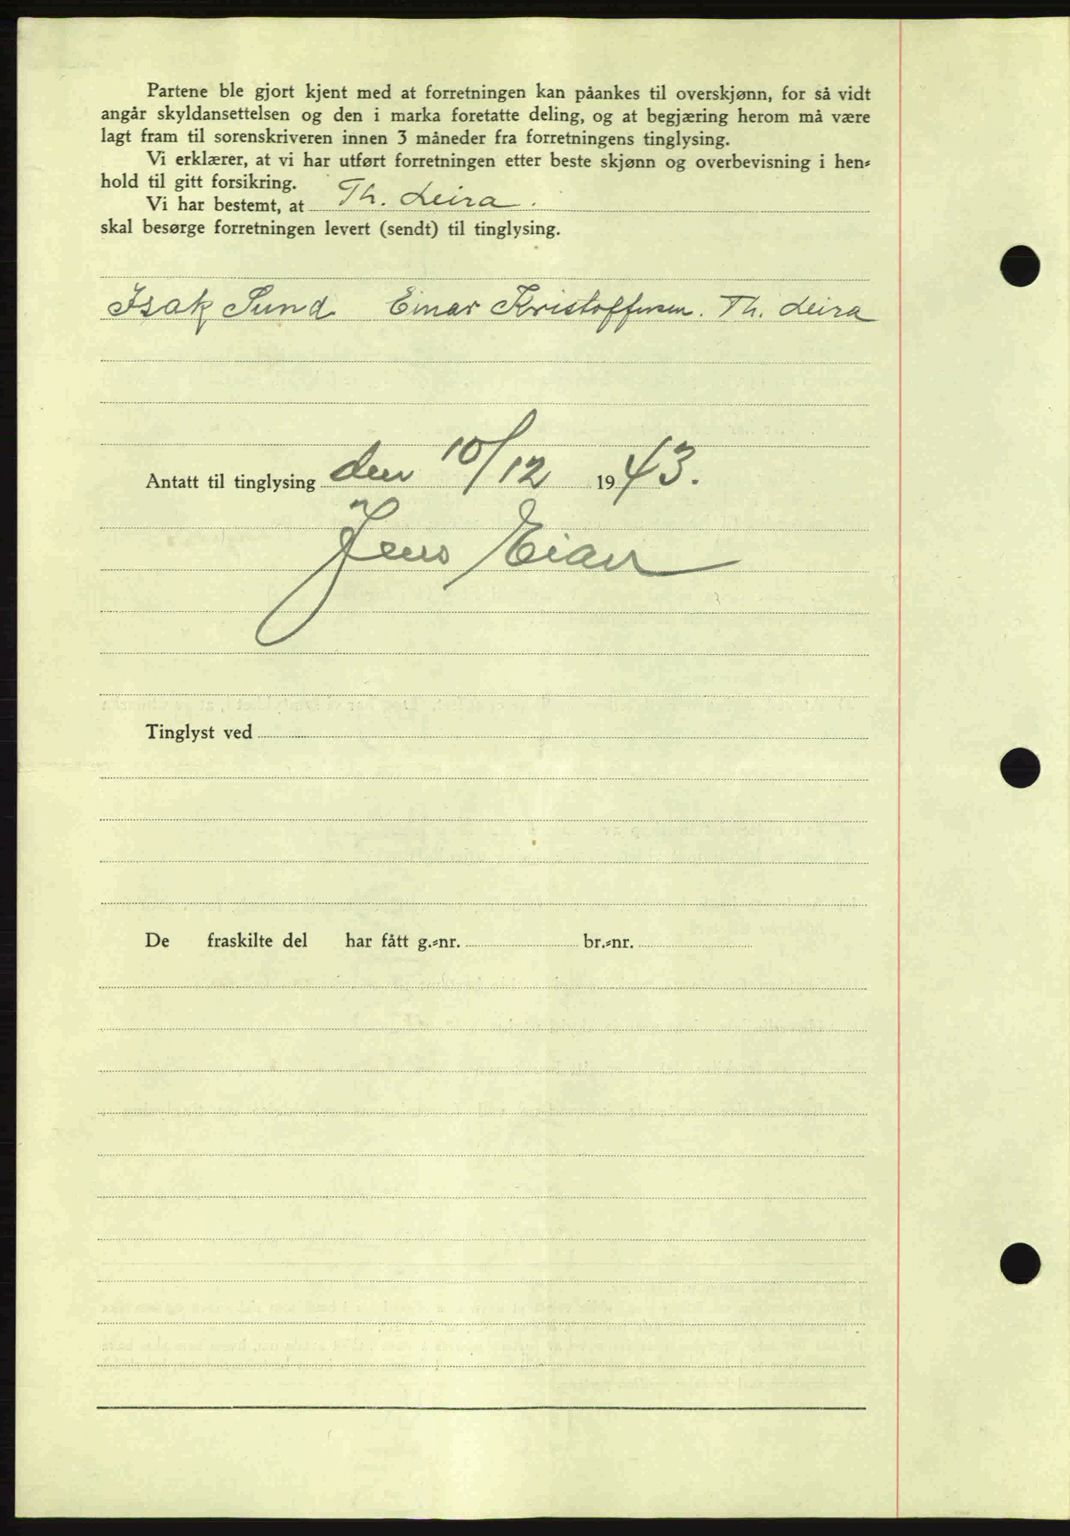 Partene ble gjort kjent med at forretningen kan påankes til overskjønn, for så vidt
angår skyldansettelsen og den i marka foretatte deling, og at begjæring herom må være
lagt fram til sorenskriveren innen 3 måneder fra forretningens tinglysing.
Vi erklærer, at vi har utført forretningen etter beste skjønn og overbevisning i hen-
hold til gitt forsikring.
Vi har bestemt, at Th. Leira.
skal besørge forretningen levert (sendt) til tinglysing.
Isak Sund Einar Kristoffersen. Th. Leira
Antatt til tinglysing den 10/12 1943.
Jens Eian
Tinglyst ved
De fraskilte del har fått g.-nr. br.-nr.